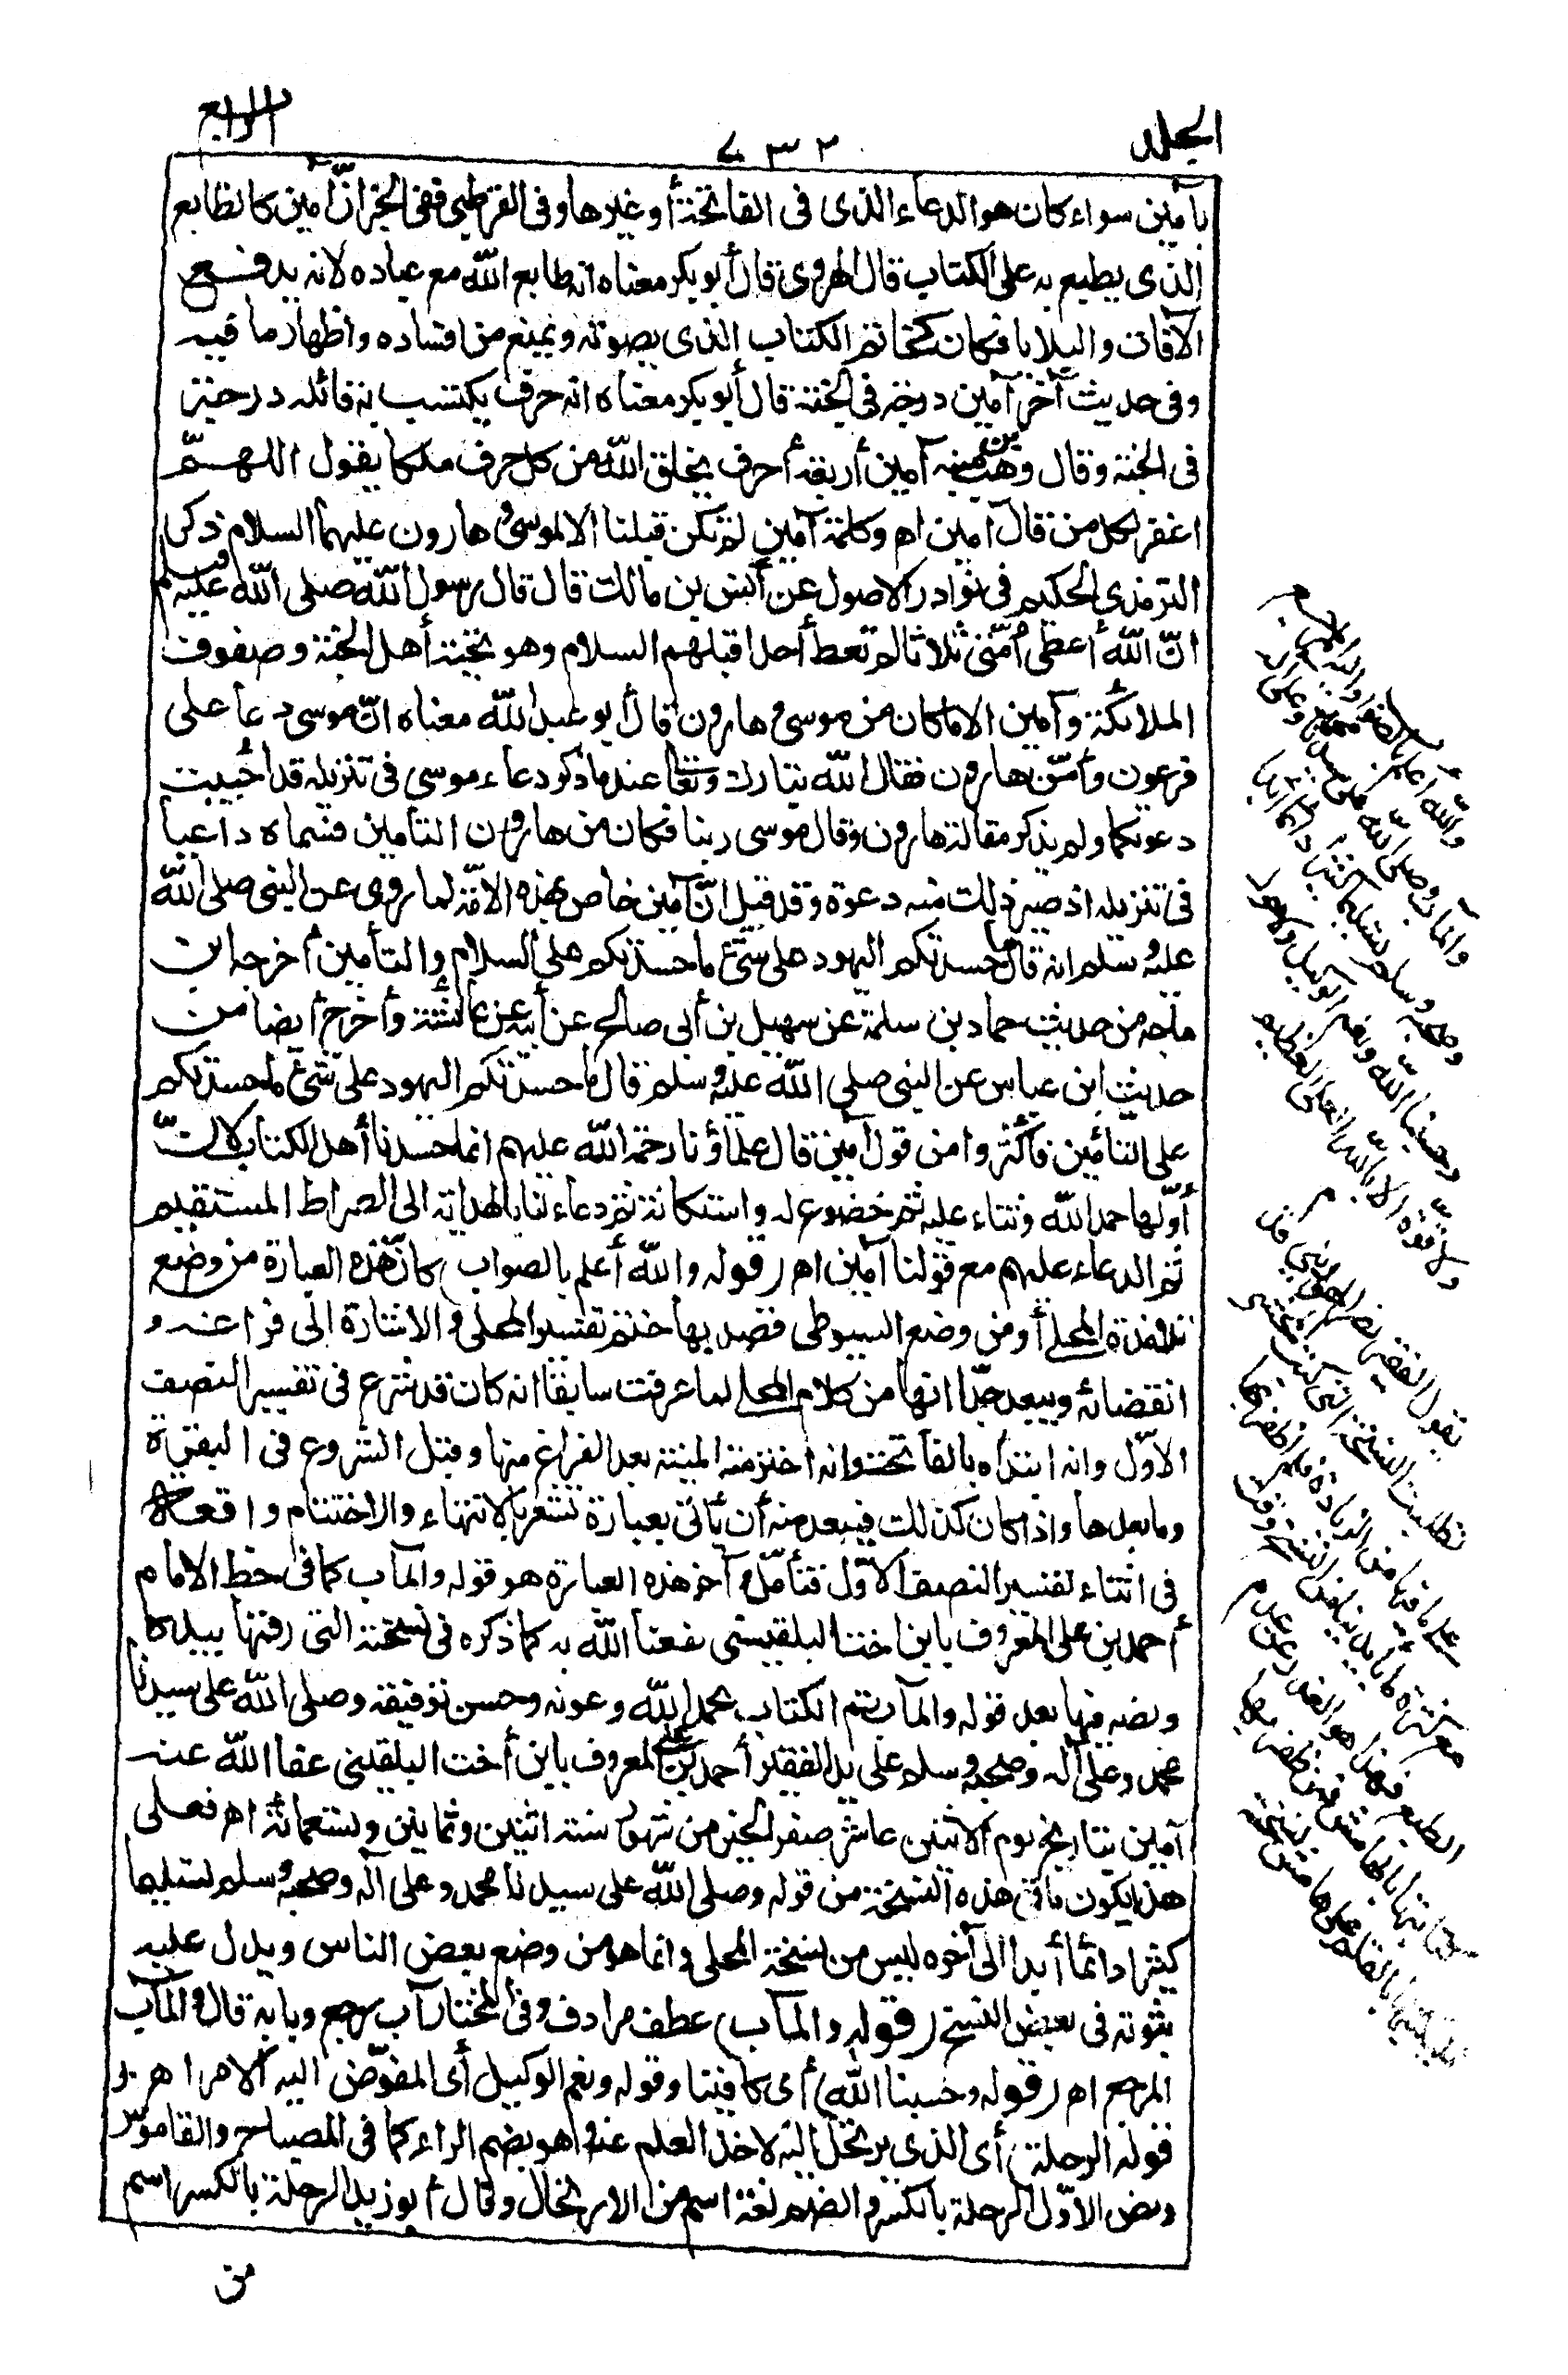 الجلد
٧٣٢
الرابع
بآمين سواء كان هو الدعاء الذى فى الفاتحة أو غيرها وفى القرطبى ففى الخبر انّ آمين كالطابع
الذى يطبع به على الكتاب قال الهروى قال أبو بكر معناه انه طابع الله مع عباده لانه يدفع
الآفات والبلايا فكان كخاتم الكتاب الذى يصونه ويمنع من افساده واظهار ما فيه
وفى حديث آخر آمين درجة فى الجنة قال أبو بكر معناه انه حرف يكتسب به قائله درجة
فى الجنة وقال وهب بن منبه آمين أربعة أحرف يخلق الله من كل حرف ملكا يقول اللهمّ
اغفر لكل من قال آمين اهـ وكلمة آمين لم تكن قبلنا الا لموسى وهارون عليهما السلام ذكر
الترمذى الحكيم فى نوادر الاصول عن أنس بن مالك قال قال رسول الله صلى الله عليه وسلم
انّ الله أعطى أمّتى ثلاثا لم تعط أحدا قبلهم السلام وهو تحية أهل الجنة وصفوف
الملائكة وآمين الا ما كان من موسى وهارون قال أبو عبد الله معناه انّ موسى دعا على
فرعون وأمّن هارون فقال الله تبارك وتعالى عند ما ذكر دعاء موسى فى تنزيله قد أجيبت
دعوتكما ولم يذكر مقالة هارون وقال موسى ربنا فكان من هارون التأمين فسماه داعيا
فى تنزيله اذ صير ذلك منه دعوة وقد قيل انّ آمين خاص بهذه الامّة لما روى عن النبى صلى الله
عليه وسلم انه قال ما حسدتكم اليهود على شئ ما حسدتكم على السلام والتأمين أخرجه ابن
ماجه من حديث حماد بن سلمة عن سهيل بن أبى صالح عن أبيه عن عائشة وأخرج أيضا من
حديث ابن عباس عن النبى صلى الله عليه وسلم قال ما حسدتكم اليهود على شئ ما حسدتكم
على التأمين فأكثروا من قول آمين قال علماؤنا رحمة الله عليهم انما حسدنا أهل الكتاب لانّ
أوّلها حمد الله وثناء عليه ثم خضوع له واستكانة ثم دعاء لنا بالهداية الى الصراط المستقيم
ثم الدعاء عليهم مع قولنا آمين اهـ (قوله والله أعلم بالصواب) كانّ هذه العبارة من وضع
تلامذة المحلى أو من وضع السيوطى قصد بها ختم تفسير المحلى والاشارة الى فراغه و
انقضائه ويبعد جدّا انها من كلام المحلى لما عرفت سابقا انه كان قد شرع فى تفسير النصف
الاوّل وانه ابتدأه بالفاتحة وانه اخترمته المنية بعد الفراغ منها وقبل الشروع فى البقرة
وما بعدها واذا كان كذلك فيبعد منه أن يأتى بعبارة تشعر بالانتهاء والاختتام واقعة
فى اثناء تفسير النصف الاوّل فتأمّل وآخر هذه العبارة هو قوله والمآب كما فى خط الامام
أحمد بن على المعروف بابن اخت البلقينى نفعنا الله به كما ذكره فى نسخته التى رقتها بيده كما
ونصه فيها بعد قوله والمآب تم الكتاب بحمد الله وعونه وحسن توفيقه وصلى الله على سيدنا
محمد وعلى آله وصحبه وسلم على يد الفقير أحمد بن على المعروف بابن أخت البلقينى عفا الله عنه
آمين بتاريخ يوم الاثنين عاشر صفر الخير من شهور سنة اثنين وثمانين وتسعمائة اهـ فعلى
هذا يكون ما فى هذه النسخة من قوله وصلى الله على سيدنا محمد وعلى آله وصحبه وسلم تسليما
كثيرا دائما أبدا الى آخره ليس من نسخة المحلى وانما هو من وضع بعض الناس ويدل عليه
ثبوته فى بعض النسخ (قوله والمآب) عطف مرادف وفى المختار آب رجع وبابه قال والمآب
المرجع اهـ (قوله وحسبنا الله) أى كافينا وقوله ونعم الوكيل أى المفوّض اليه الامر اهـ و
قوله الرحلة) أى الذى يرتحل اليه لاخذ العلم عنه وهو بضم الراء كما فى المصباح والقاموس
ونص الاوّل الرحلة بالكسر والضم لغة اسم من الارتحال وقال أبو زيد الرحلة بالكسر اسم
من
والله أعلم بالصواب واليه المرجع
والمآب وصلى الله على سيدنا محمد وعلى آله
وصحبه وسلم تسليما كثيرا دائما أبدا
وحسبنا الله ونعم الوكيل ولا حول
ولا قوة الا بالله العلى العظيم
يقول الفقير نصر الهورينى قد
تطلبت النسخ التى كتبت